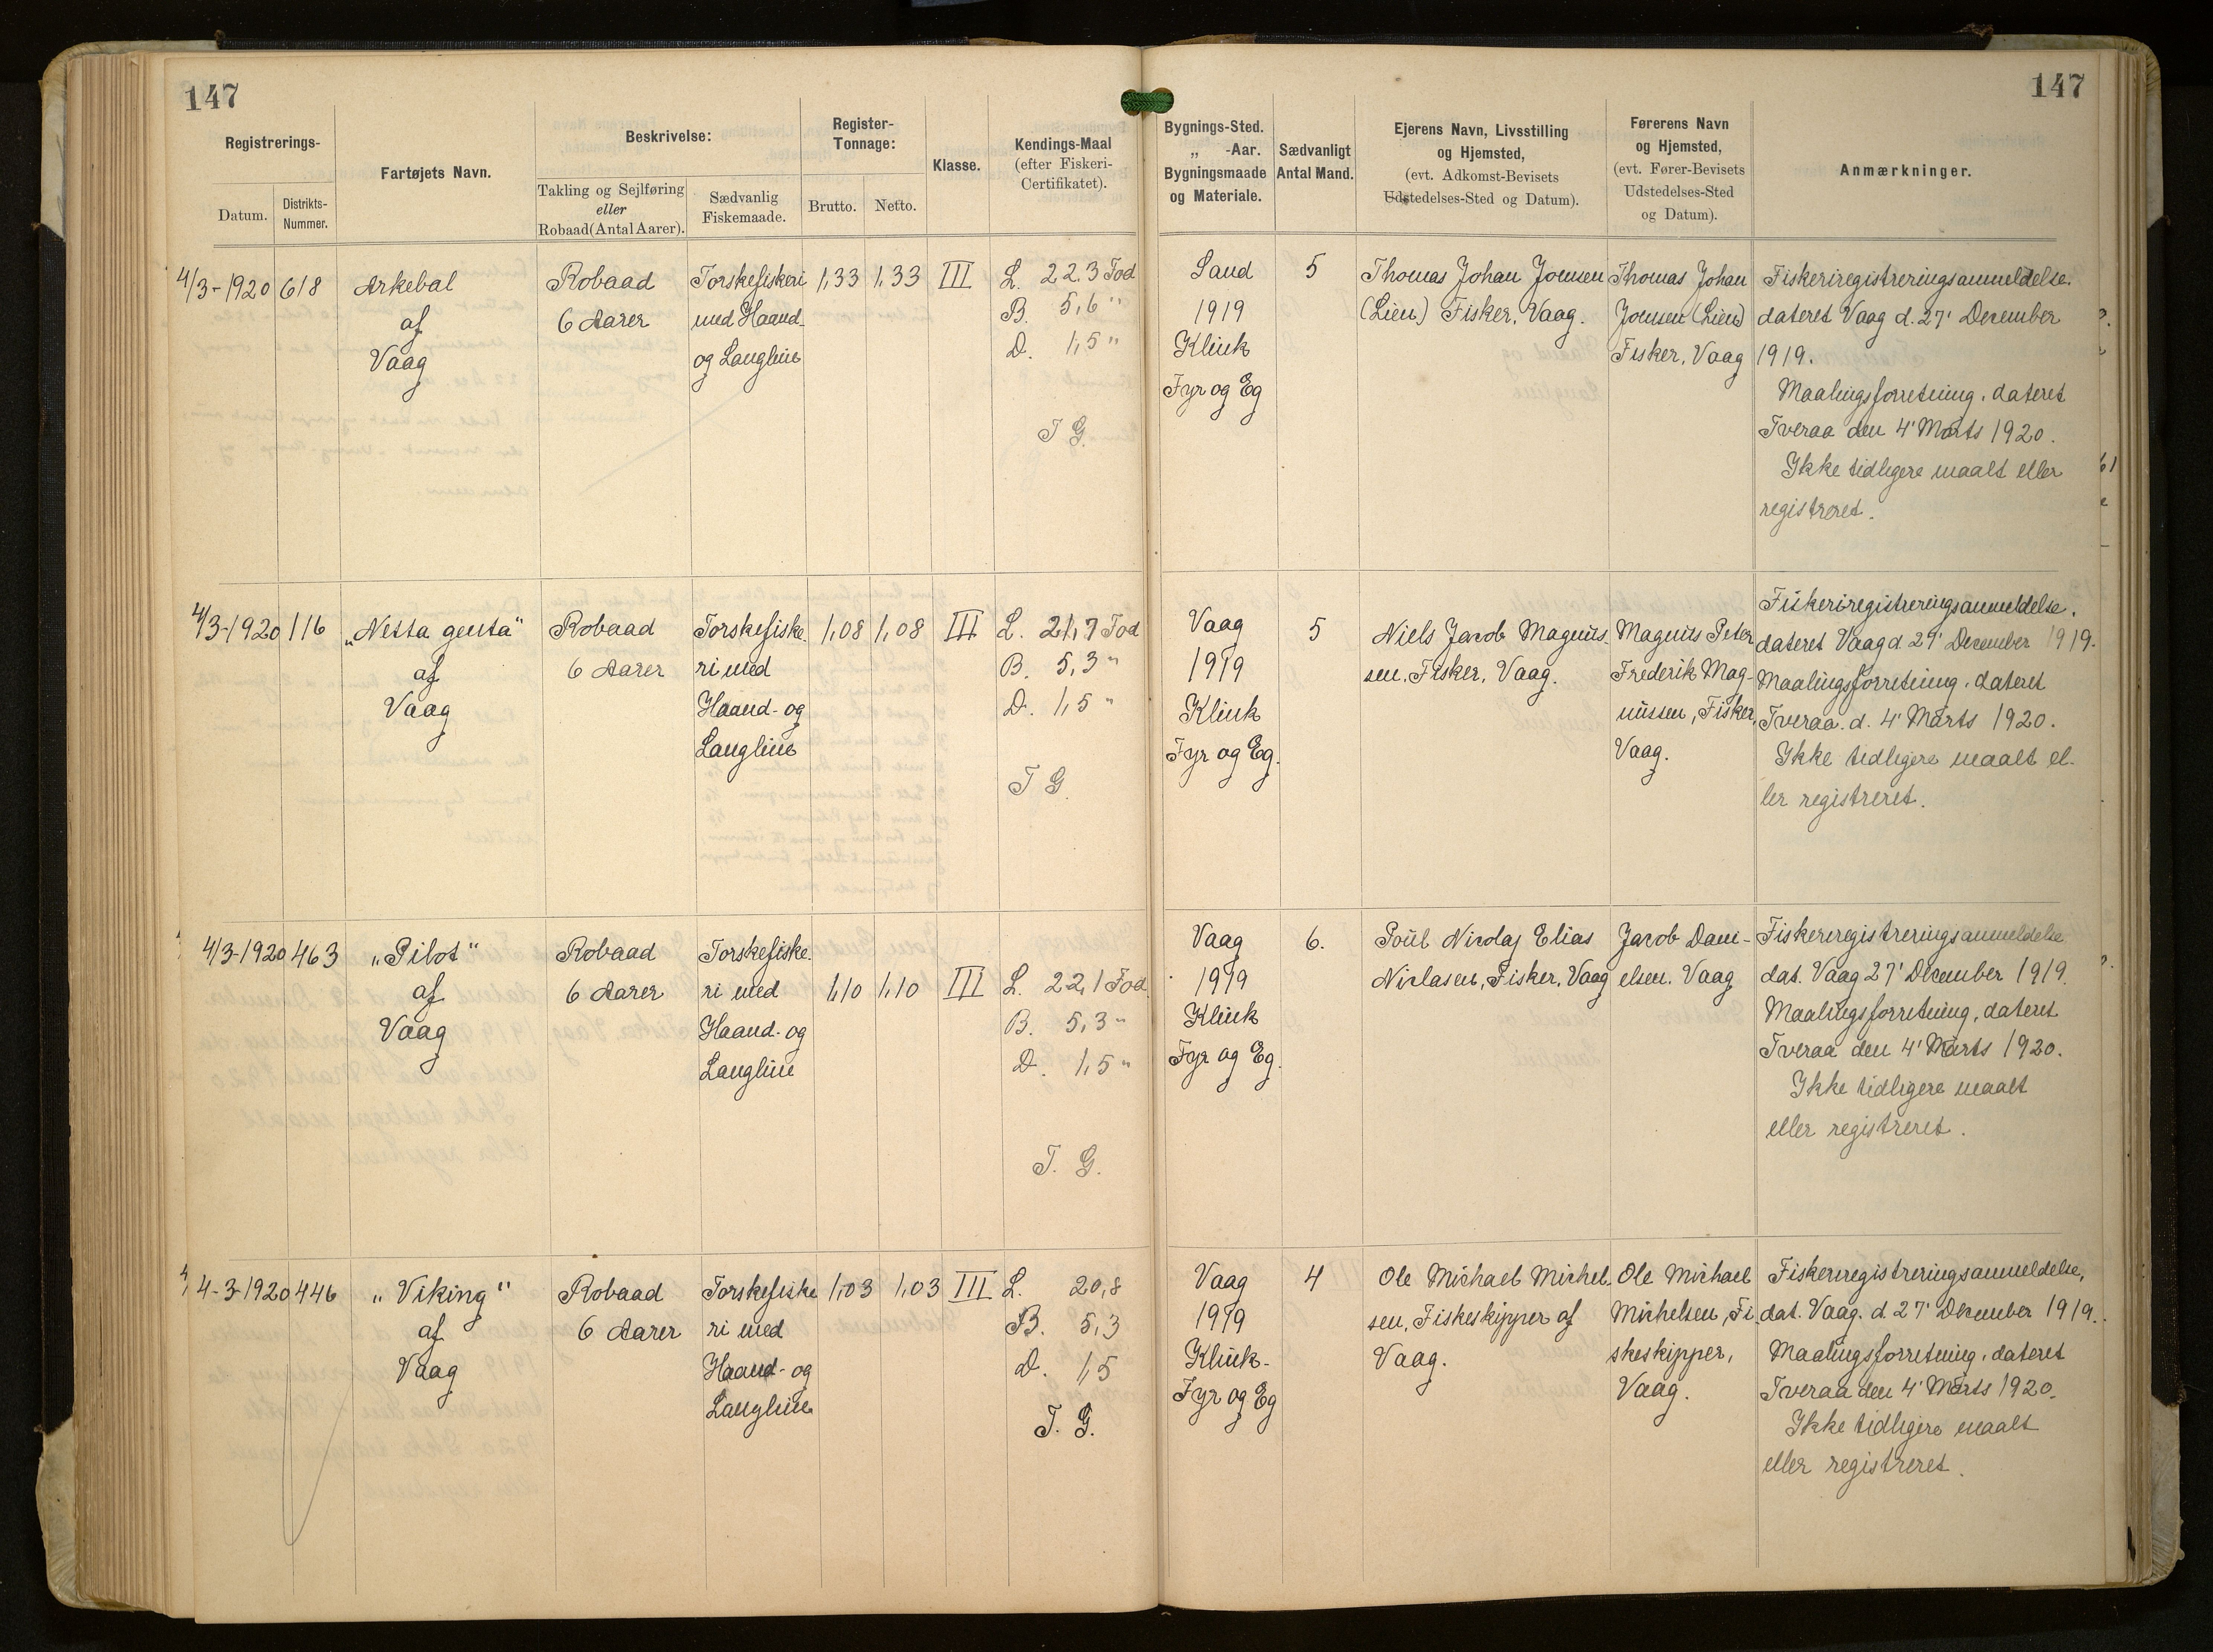 147
147
Registrerings-
Datum.
Distrikts-
Nummer.
Fartøjets Navn.
Beskrivelse:
Takling og Sejlføring
eller
Robaad (Antal Aarer).
Sædvanlig
Fiskemaade.
Register-
Tonnage:
Brutto.
Netto.
Klasse.
Kendings-Maal
(efter Fiskeri-
Certifikatet).
Bygnings-Sted.
„ -Aar.
Bygningsmaade
og Materiale.
Sædvanligt
Antal Mand.
Ejerens Navn, Livsstilling
og Hjemsted,
(evt. Adkomst-Bevisets
Udstedelses-Sted og Datum).
Førerens Navn
og Hjemsted,
(evt. Fører-Bevisets
Udstedelses-Sted
og Datum).
Anmærkninger.
4/3-1920
618
Arkebal
af
Vaag
Robaad
6 Aarer
Torskefiskeri
med Haand-
og Langline
1,33
1,33
III
L. 22.3 Fod
B. 5,6 "
D. 1,5 "
T G.
Sand
1919
Klink
Fyr og Eg
5
Thomas Johan Joensen
(Lien) Fisker, Vaag.
Thomas Johan
Joensen (Lien)
Fisker, Vaag
Fiskeriregistreringsanmeldelse.
dateret Vaag d. 27' December
1919.
Maalingsforretning, dateret
Tveraa den 4' Marts 1920.
Ikke tidligere maalt eller
registreret.
4/3-1920
116
„Netta genta"
af
Vaag
Robaad
6 Aarer
Torskefiske-
ri med
Haand- og
Langline
1,08
1,08
III
L. 21,7 Fod
B. 5,3 "
D. 1,5 "
T G.
Vaag
1919
Klink
Fyr og Eg.
5
Niels Jacob Magnus-
sen, Fisker, Vaag.
Magnus Peter
Frederik Mag-
nussen, Fisker,
Vaag.
Fiskeriregistreringsanmeldelse.
dateret Vaag d. 27' December 1919.
Maalingsforretning, dateret
Tveraa. d. 4' Marts 1920.
Ikke tidligere maalt el-
ler registreret.
4/3-1920
463
„Pilot"
af
Vaag
Robaad
6 Aarer
Torskefiske-
ri med
Haand- og
Langline
1,10
1,10
III
L. 22,1 Fod.
B. 5,3 "
D. 1,5 "
T. G.
Vaag
1919
Klink
Fyr og Eg.
6.
Poul Nicolaj Elias
Niclasen, Fisker, Vaag
Jacob Dani-
elsen, Vaag
Fiskeriregistreringsanmeldelse
dat. Vaag 27' December 1919.
Maalingsforretning, dateret
Tveraa den 4' Marts 1920.
Ikke tidligere maalt
eller registreret.
4-3-1920
446
„Viking"
af
Vaag
Robaad
6 Aarer
Torskefiske
ri med
Haand- og
Langline
1,03
1,03
III
L. 20,8
B. 5,3
D. 1,5
T. G.
Vaag
1919
Klink-
Fyr og Eg
4
Ole Michael Michel-
sen, Fiskeskipper af
Vaag.
Ole Michael
Michelsen, Fi-
skeskipper,
Vaag.
Fiskeriregistreringsanmeldelse,
dat. Vaag. d. 27' December 1919.
Maalingsforretning, dateret
Tveraa den 4' Marts 1920.
Ikke tidligere maalt
eller registreret.